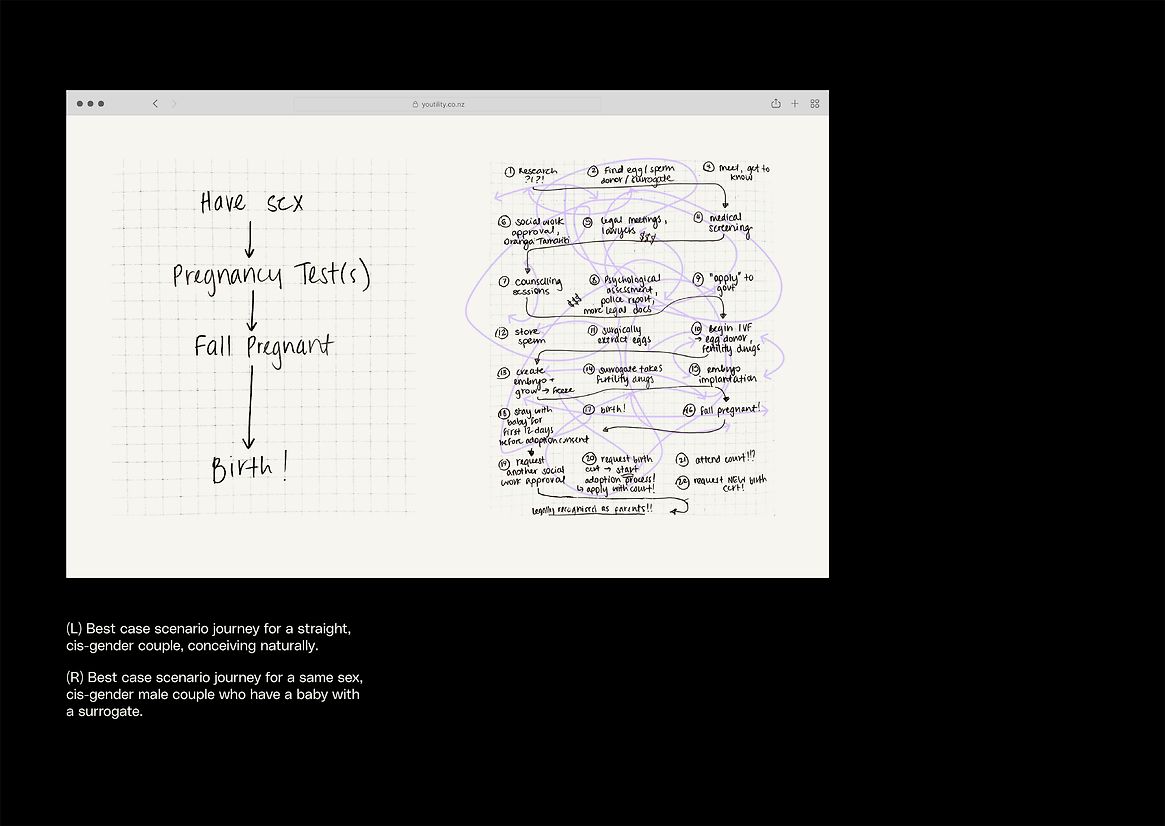 youtility.co.nz
Have sex
Pregnancy Test(s)
Fall Pregnant
Birth!
① Research
?!?!
② Find egg/sperm
donor/surrogate
③ meet, get to
know
④ medical
screening
⑤ legal meetings,
lawyers $$$
⑥ social work
approval,
Oranga Tamariki
⑦ counselling
sessions
⑧ Psychological
assessment,
police report,
more legal docs
$$$
⑨ "apply" to
govt
⑩ begin IVF
→ egg donor,
fertility drugs
⑪ surgically
extract eggs
⑫ store
sperm
⑬ create
embryo +
grow → freeze
⑭ surrogate takes
fertility drugs
⑮ embryo
implantation
⑯ fall pregnant!
⑰ birth!
⑱ stay with
baby for
first 12 days
before adoption consent
⑲ request
another social
work approval
⑳ request birth
cert → start
adoption process!
↳ apply with court!
㉑ attend court!?
㉒ request NEW birth
cert!
legally recognised as parents!!
(L) Best case scenario journey for a straight,
cis-gender couple, conceiving naturally.
(R) Best case scenario journey for a same sex,
cis-gender male couple who have a baby with
a surrogate.